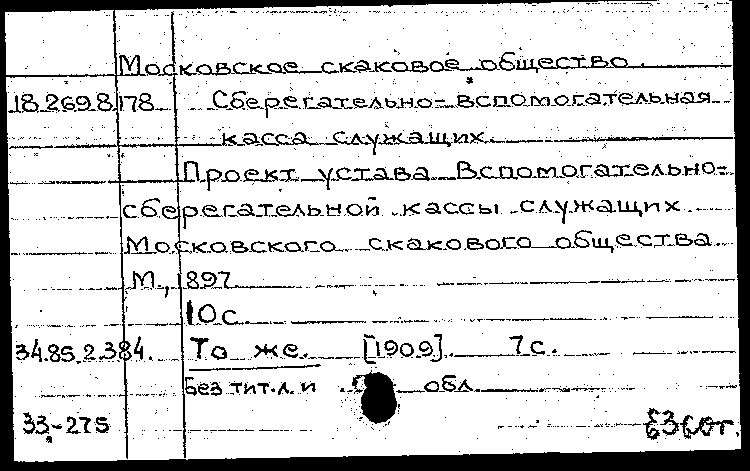 Московское скаковое общество.
18.269.8.178 Сберегательно-вспомогательная
касса служащих.
Проект устава Вспомогательно-
сберегательной кассы служащих
Московского скакового общества.
М., 1897
10 с.
34.85.2.384. То же. [1909]. 7 с.
Без тит. л. и обл.
33-275